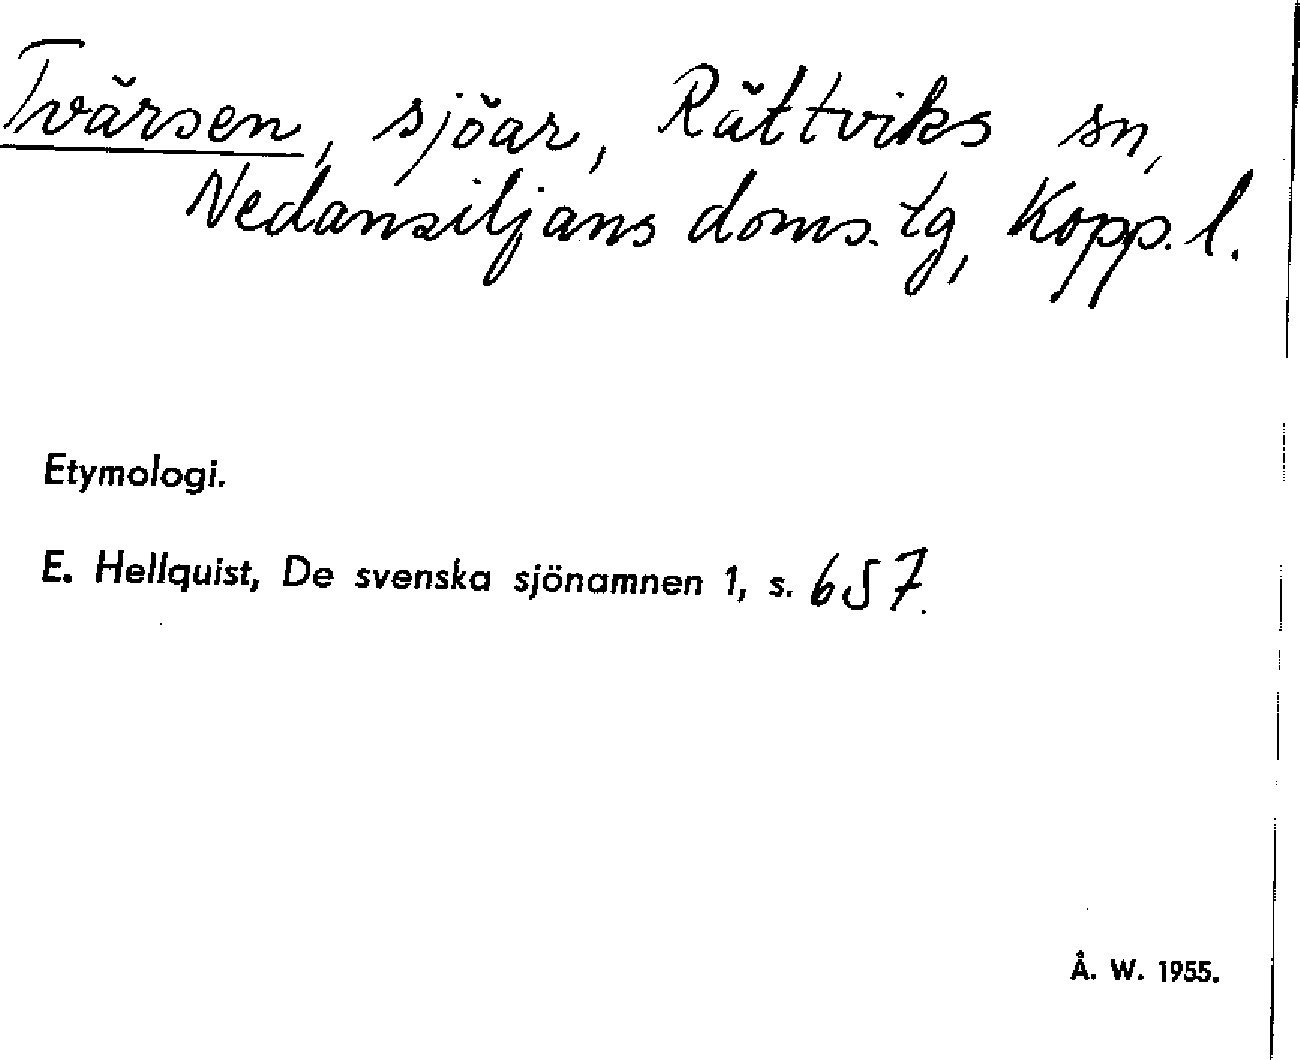 Tvärsen, sjöar, Rättviks sn,
Nedansiljans doms. tg, Kopp. l.
Etymologi.
E. Hellquist, De svenska sjönamnen 1, s. 657.
Å. W. 1955.